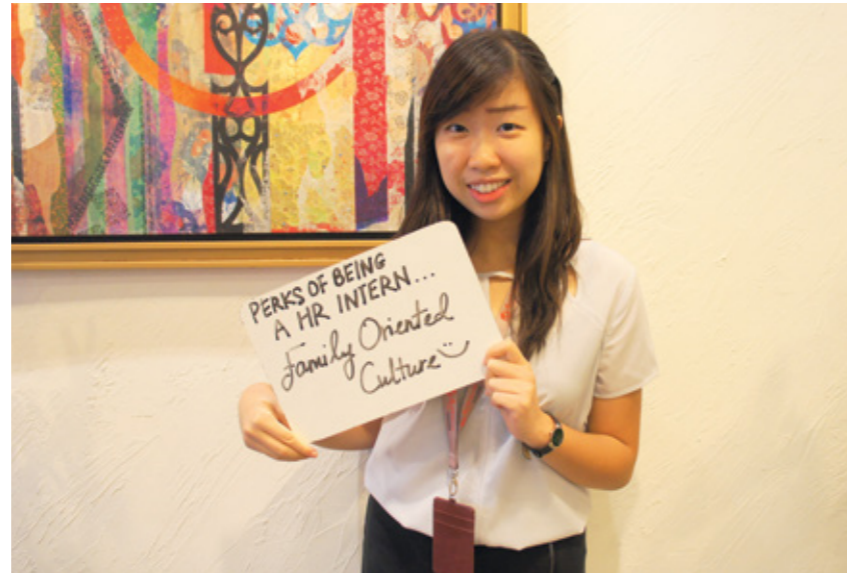 PERKS OF BEING
A HR INTERN...
Family Oriented
Culture